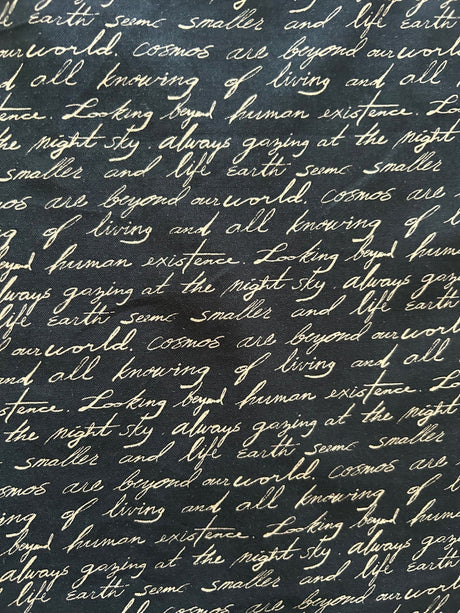 Earth seems smaller and life Earth
our world. Cosmos are beyond our world.
and all knowing of living and all
existence. Looking beyond human existence.
the night sky. always gazing at the night
smaller and life Earth seems smaller
Cosmos are beyond our world. Cosmos are
of living and all knowing of
beyond human existence. Looking beyond
always gazing at the night sky. always gazing
life Earth seems smaller and life Earth
our world. Cosmos are beyond our world
and all knowing of living and all
existence. Looking beyond human existence.
the night sky. always gazing at the night
smaller and life Earth seems smaller
Cosmos are beyond our world. Cosmos are
of living and all knowing of
beyond human existence. Looking beyond human
always gazing at the night sky. always gazing
life Earth seems smaller and life Earth
Cosmos are beyond our world